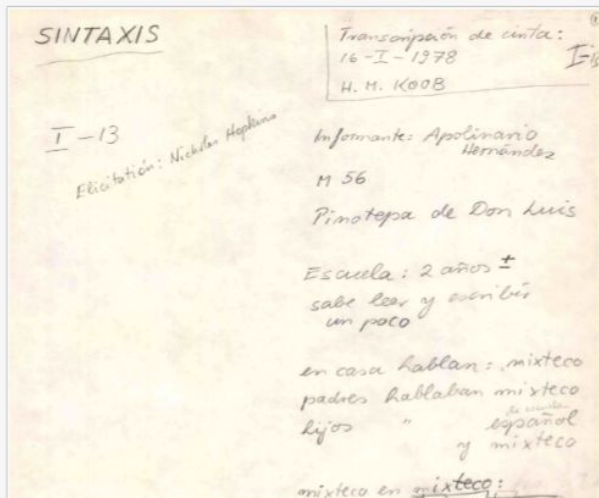 SINTAXIS
Transcripción de cinta:
16-I-1978
H. M. KOOB
I-13
Elicitation: Nicholas Hopkins
Informante: Apolinario
Hernández
M 56
Pinotepa de Don Luis
Escuela: 2 años ±
sabe leer y escribir
un poco
en casa hablan: mixteco
padres hablaban mixteco
hijos " español
y mixteco
mixteco en mixteco: